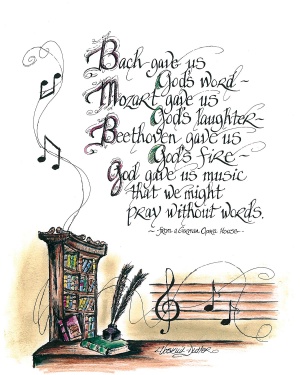 Bach gave us
God's word~
Mozart gave us
God's laughter~
Beethoven gave us
God's fire~
God gave us music
that we might
pray without words.
~from a German Opera House~